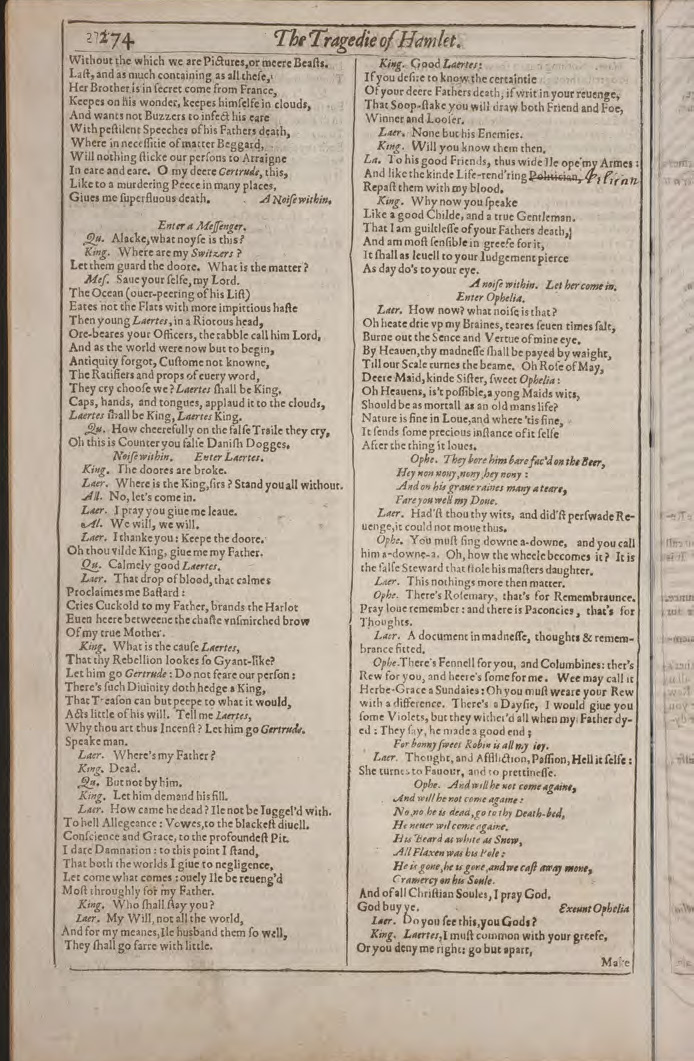 27
274
The Tragedie of Hamlet.
Without the which we are Pictures, or meere Beasts.
Last, and as much containing as all these,
Her Brother is in secret come from France,
Keepes on his wonder, keepes himselfe in clouds,
And wants not Buzzers to infect his eare
With pestilent Speeches of his Fathers death,
Where in necessitie of matter Beggard,
Will nothing sticke our persons to Arraigne
In eare and eare. O my deere Gertrude, this,
Like to a murdering Peece in many places,
Giues me superfluous death. A Noise within.
Enter a Messenger.
Qu. Alacke, what noyse is this?
King. Where are my Switzers?
Let them guard the doore. What is the matter?
Mes. Saue your selfe, my Lord.
The Ocean (ouer-peering of his List)
Eates not the Flats with more impittious haste
Then young Laertes, in a Riotous head,
Ore-beares your Officers, the rabble call him Lord,
And as the world were now but to begin,
Antiquity forgot, Custome not knowne,
The Ratifiers and props of euery word,
They cry choose we? Laertes shall be King,
Caps, hands, and tongues, applaud it to the clouds,
Laertes shall be King, Laertes King.
Qu. How cheerefully on the false Traile they cry,
Oh this is Counter you false Danish Dogges.
Noise within. Enter Laertes.
King. The doores are broke.
Laer. Where is the King, sirs? Stand you all without.
All. No, let's come in.
Laer. I pray you giue me leaue.
Al. We will, we will.
Laer. I thanke you: Keepe the doore.
Oh thou vilde King, giue me my Father.
Qu. Calmely good Laertes.
Laer. That drop of blood, that calmes
Proclaimes me Bastard:
Cries Cuckold to my Father, brands the Harlot
Euen heere betweene the chaste vnsmirched brow
Of my true Mother.
King. What is the cause Laertes,
That thy Rebellion lookes so Gyant-like?
Let him go Gertrude: Do not feare our person:
There's such Diuinity doth hedge a King,
That Treason can but peepe to what it would,
Acts little of his will. Tell me Laertes,
Why thou art thus Incenst? Let him go Gertrude.
Speake man.
Laer. Where's my Father?
King. Dead.
Qu. But not by him.
King. Let him demand his fill.
Laer. How came he dead? Ile not be Iuggel'd with.
To hell Allegeance: Vowes, to the blackest diuell.
Conscience and Grace, to the profoundest Pit.
I dare Damnation: to this point I stand,
That both the worlds I giue to negligence,
Let come what comes: onely Ile be reueng'd
Most throughly for my Father.
King. Who shall stay you?
Laer. My Will, not all the world,
And for my meanes, Ile husband them so well,
They shall go farre with little.
King. Good Laertes:
If you desire to know the certaintie
Of your deere Fathers death, if writ in your reuenge,
That Soop-stake you will draw both Friend and Foe,
Winner and Looser.
Laer. None but his Enemies.
King. Will you know them then.
La. To his good Friends, thus wide Ile ope my Armes:
And like the kinde Life-rend'ring Politician,
Repast them with my blood.
King. Why now you speake
Like a good Childe, and a true Gentleman.
That I am guiltlesse of your Fathers death,
And am most sensible in greefe for it,
It shall as leuell to your Iudgement pierce
As day do's to your eye.
A noise within. Let her come in.
Enter Ophelia.
Laer. How now? what noise is that?
Oh heate drie vp my Braines, teares seuen times salt,
Burne out the Sence and Vertue of mine eye.
By Heauen, thy madnesse shall be payed by waight,
Till our Scale turnes the beame. Oh Rose of May,
Deere Maid, kinde Sister, sweet Ophelia:
Oh Heauens, is't possible, a yong Maids wits,
Should be as mortall as an old mans life?
Nature is fine in Loue, and where 'tis fine,
It sends some precious instance of it selfe
After the thing it loues.
Ophe. They bore him bare fac'd on the Beer,
Hey non nony, nony, hey nony:
And on his graue raines many a teare,
Fare you well my Doue.
Laer. Had'st thou thy wits, and did'st perswade Re-
uenge, it could not moue thus.
Ophe. You must sing downe a-downe, and you call
him a-downe-a. Oh, how the wheele becomes it? It is
the false Steward that stole his masters daughter.
Laer. This nothings more then matter.
Ophe. There's Rosemary, that's for Remembraunce.
Pray loue remember: and there is Paconcies, that's for
Thoughts.
Laer. A document in madnesse, thoughts & remem-
brance fitted.
Ophe. There's Fennell for you, and Columbines: ther's
Rew for you, and heere's some for me. Wee may call it
Herbe-Grace a Sundaies: Oh you must weare your Rew
with a difference. There's a Daysie, I would giue you
some Violets, but they wither'd all when my Father dy-
ed: They say, he made a good end;
For bonny sweet Robin is all my ioy.
Laer. Thought, and Affliction, Passion, Hell it selfe:
She turnes to Fauour, and to prettinesse.
Ophe. And will he not come againe,
And will he not come againe:
No, no he is dead, go to thy Death-bed,
He neuer wil come againe.
His Beard as white as Snow,
All Flaxen was his Pole:
He is gone, he is gone, and we cast away mone,
Gramercy on his Soule.
And of all Christian Soules, I pray God.
God buy ye. Exeunt Ophelia
Laer. Do you see this, you Gods?
King. Laertes, I must common with your greefe,
Or you deny me right: go but apart,
Make